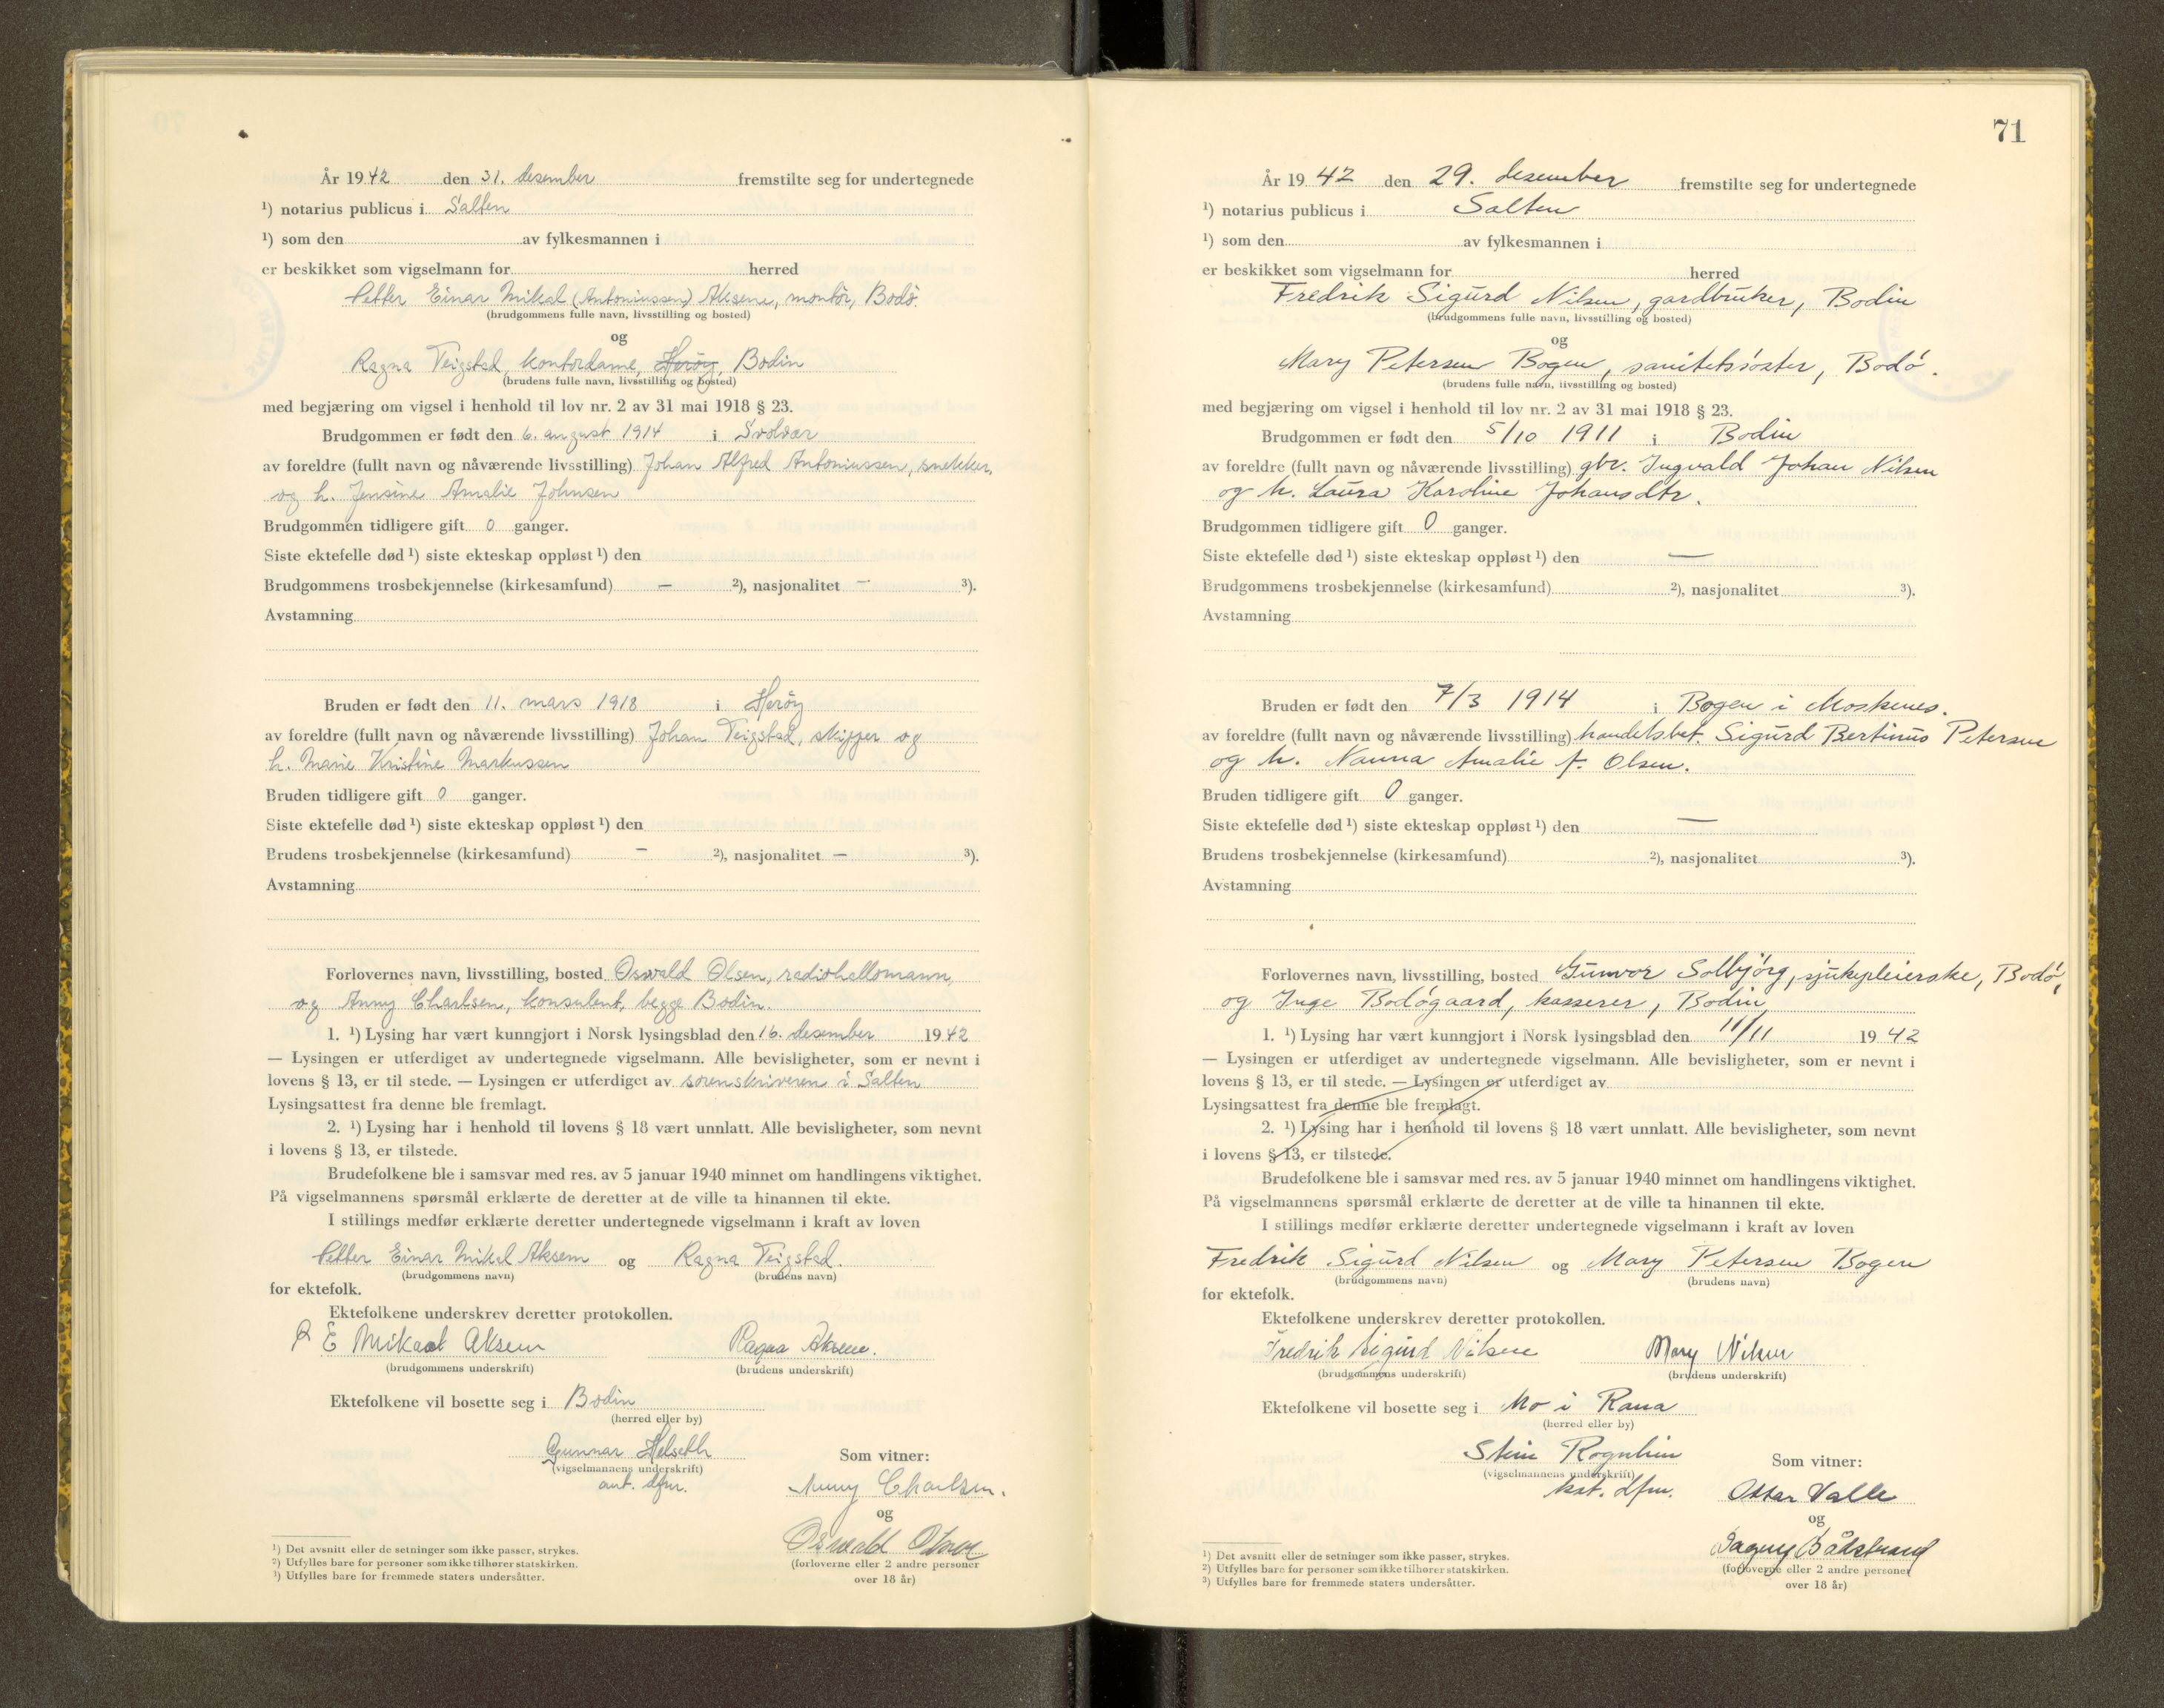 År 1942 den 31. desember fremstilte seg for undertegnede
¹) notarius publicus i Salten
¹) som den av fylkesmannen i
er beskikket som vigselmann for herred
Petter Einar Mikal (Antoniussen) Aksem, montör, Bodö
(brudgommens fulle navn, livsstilling og bosted)
og
Ragna Teigstad, kontordame, Heröy, Bodin
(brudens fulle navn, livsstilling og bosted)
med begjæring om vigsel i henhold til lov nr. 2 av 31 mai 1918 § 23.
Brudgommen er født den 6. august 1914 i Svolvær
av foreldre (fullt navn og nåværende livsstilling) Johan Alfred Antoniussen, snekker,
og h. Jensine Amalie Johnsen
Brudgommen tidligere gift 0 ganger.
Siste ektefelle død ¹) siste ekteskap oppløst ¹) den
Brudgommens trosbekjennelse (kirkesamfund) — ²), nasjonalitet — ³).
Avstamning
Bruden er født den 11. mars 1918 i Heröy
av foreldre (fullt navn og nåværende livsstilling) Johan Teigstad, skipper og
h. Marie Kristine Markussen
Bruden tidligere gift 0 ganger.
Siste ektefelle død ¹) siste ekteskap oppløst ¹) den
Brudens trosbekjennelse (kirkesamfund) — ²), nasjonalitet — ³).
Avstamning
Forlovernes navn, livsstilling, bosted Oswald Olsen, radiohallomann,
og Anny Charlsen, konsulent, begge Bodin.
1. ¹) Lysing har vært kunngjort i Norsk lysingsblad den 16. desember 1942
— Lysingen er utferdiget av undertegnede vigselmann. Alle bevisligheter, som er nevnt i
lovens § 13, er til stede. — Lysingen er utferdiget av sorenskriveren i Salten
Lysingsattest fra denne ble fremlagt.
2. ¹) Lysing har i henhold til lovens § 18 vært unnlatt. Alle bevisligheter, som nevnt
i lovens § 13, er tilstede.
Brudefolkene ble i samsvar med res. av 5 januar 1940 minnet om handlingens viktighet.
På vigselmannens spørsmål erklærte de deretter at de ville ta hinannen til ekte.
I stillings medfør erklærte deretter undertegnede vigselmann i kraft av loven
Petter Einar Mikal Aksem og Ragna Teigstad.
(brudgommens navn) (brudens navn)
for ektefolk.
Ektefolkene underskrev deretter protokollen.
P E Mikael Aksem Ragna Aksem.
(brudgommens underskrift) (brudens underskrift)
Ektefolkene vil bosette seg i Bodin
(herred eller by)
Gunnar Helseth Som vitner:
(vigselmannens underskrift)
aut. dfm. Anny Charlsen.
og
Oswald Olsen
(forloverne eller 2 andre personer
over 18 år)
¹) Det avsnitt eller de setninger som ikke passer, strykes.
²) Utfylles bare for personer som ikke tilhører statskirken.
³) Utfylles bare for fremmede staters undersåtter.
71
År 1942 den 29. desember fremstilte seg for undertegnede
¹) notarius publicus i Salten
¹) som den av fylkesmannen i
er beskikket som vigselmann for herred
Fredrik Sigurd Nilsen, gardbruker, Bodin
(brudgommens fulle navn, livsstilling og bosted)
og
Mary Petersen Bogen, sanitetssöster, Bodö.
(brudens fulle navn, livsstilling og bosted)
med begjæring om vigsel i henhold til lov nr. 2 av 31 mai 1918 § 23.
Brudgommen er født den 5/10 1911 i Bodin
av foreldre (fullt navn og nåværende livsstilling) gbr. Ingvald Johan Nilsen
og h. Laura Karoline Johansdtr.
Brudgommen tidligere gift 0 ganger.
Siste ektefelle død ¹) siste ekteskap oppløst ¹) den —
Brudgommens trosbekjennelse (kirkesamfund) ²), nasjonalitet ³).
Avstamning
Bruden er født den 7/3 1914 i Bogen i Moskenes.
av foreldre (fullt navn og nåværende livsstilling) handelsbet. Sigurd Bertinus Petersen
og h. Nanna Amalie f. Olsen.
Bruden tidligere gift 0 ganger.
Siste ektefelle død ¹) siste ekteskap oppløst ¹) den —
Brudens trosbekjennelse (kirkesamfund) ²), nasjonalitet ³).
Avstamning
Forlovernes navn, livsstilling, bosted Gunvor Solbjörg, sjukepleierske, Bodö,
og Inge Bodögaard, kasserer, Bodin
1. ¹) Lysing har vært kunngjort i Norsk lysingsblad den 11/11 1942
— Lysingen er utferdiget av undertegnede vigselmann. Alle bevisligheter, som er nevnt i
lovens § 13, er til stede. — Lysingen er utferdiget av
Lysingsattest fra denne ble fremlagt.
2. ¹) Lysing har i henhold til lovens § 18 vært unnlatt. Alle bevisligheter, som nevnt
i lovens § 13, er tilstede.
Brudefolkene ble i samsvar med res. av 5 januar 1940 minnet om handlingens viktighet.
På vigselmannens spørsmål erklærte de deretter at de ville ta hinannen til ekte.
I stillings medfør erklærte deretter undertegnede vigselmann i kraft av loven
Fredrik Sigurd Nilsen og Mary Petersen Bogen
(brudgommens navn) (brudens navn)
for ektefolk.
Ektefolkene underskrev deretter protokollen.
Fredrik Sigurd Nilsen Mary Nilsen
(brudgommens underskrift) (brudens underskrift)
Ektefolkene vil bosette seg i Mo i Rana
(herred eller by)
Stein Rognlien Som vitner:
(vigselmannens underskrift)
kst. dfm. Ottar Valle
og
Dagny Bådstrand
(forloverne eller 2 andre personer
over 18 år)
¹) Det avsnitt eller de setninger som ikke passer, strykes.
²) Utfylles bare for personer som ikke tilhører statskirken.
³) Utfylles bare for fremmede staters undersåtter.